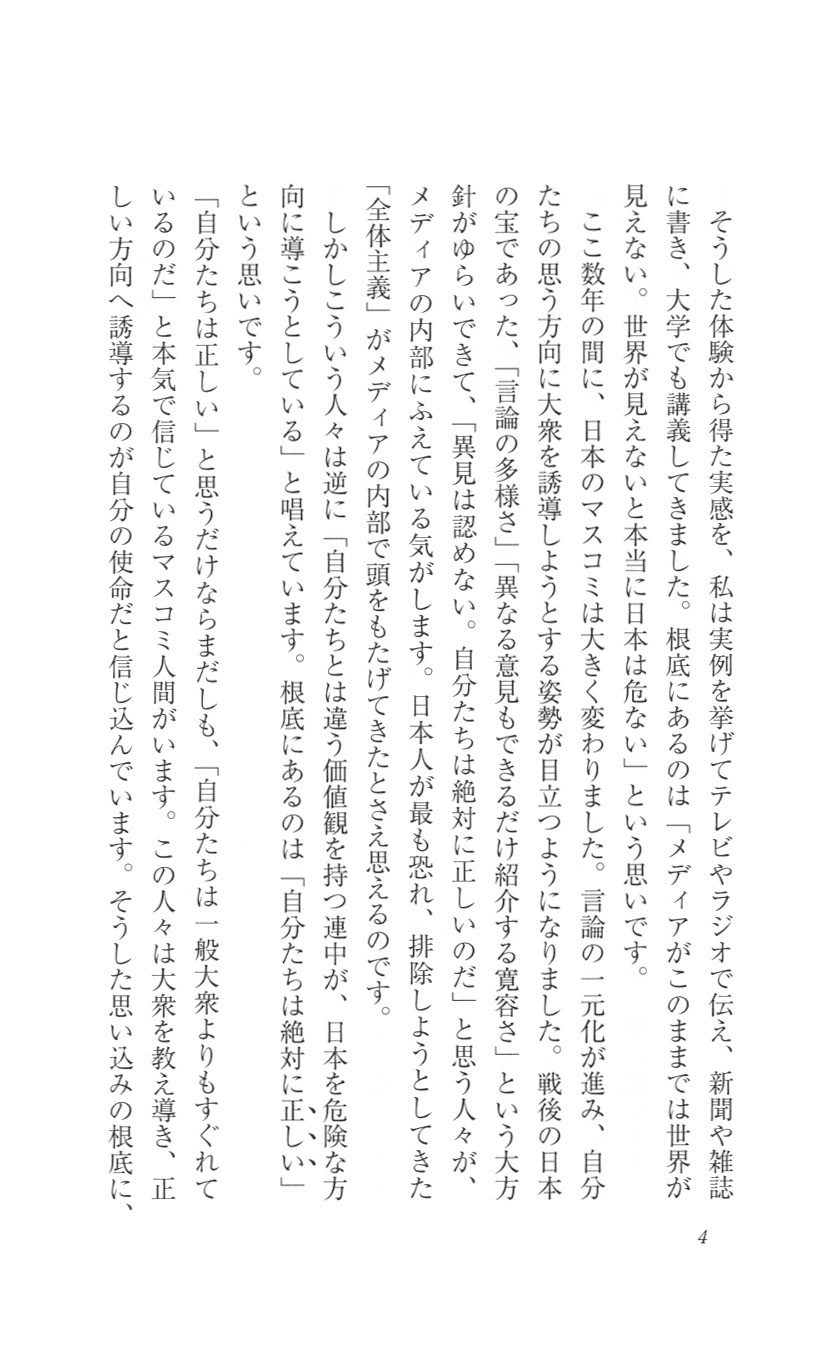 そうした体験から得た実感を、私は実例を挙げてテレビやラジオで伝え、新聞や雑誌
に書き、大学でも講義してきました。根底にあるのは「メディアがこのままでは世界が
見えない。世界が見えないと本当に日本は危ない」という思いです。
ここ数年の間に、日本のマスコミは大きく変わりました。言論の一元化が進み、自分
たちの思う方向に大衆を誘導しようとする姿勢が目立つようになりました。戦後の日本
の宝であった、「言論の多様さ」「異なる意見もできるだけ紹介する寛容さ」という大方
針がゆらいできて、「異見は認めない。自分たちは絶対に正しいのだ」と思う人々が、
メディアの内部にふえている気がします。日本人が最も恐れ、排除しようとしてきた
「全体主義」がメディアの内部で頭をもたげてきたとさえ思えるのです。
しかしこういう人々は逆に「自分たちとは違う価値観を持つ連中が、日本を危険な方
向に導こうとしている」と唱えています。根底にあるのは「自分たちは絶対に正しい」
という思いです。
「自分たちは正しい」と思うだけならまだしも、「自分たちは一般大衆よりもすぐれて
いるのだ」と本気で信じているマスコミ人間がいます。この人々は大衆を教え導き、正
しい方向へ誘導するのが自分の使命だと信じ込んでいます。そうした思い込みの根底に、
4